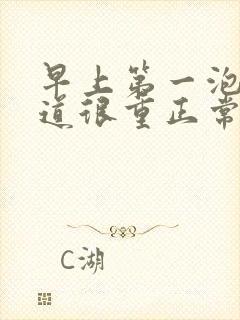 早上第一泡
道很重正常
C湖